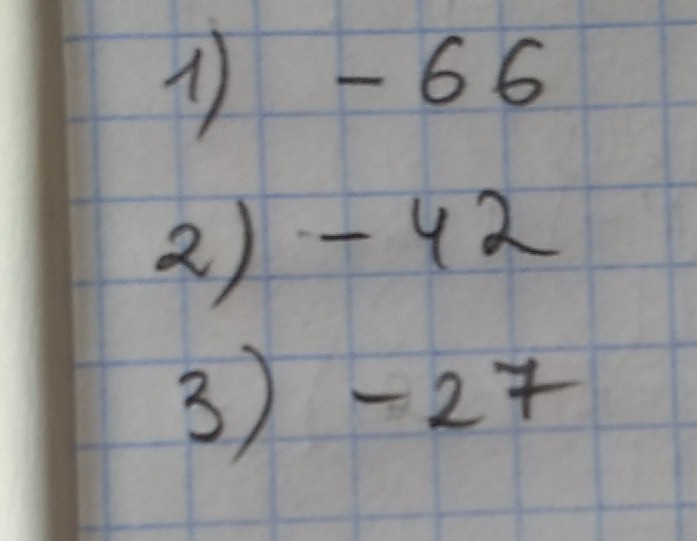 1) - 66
2) - 42
3) - 27